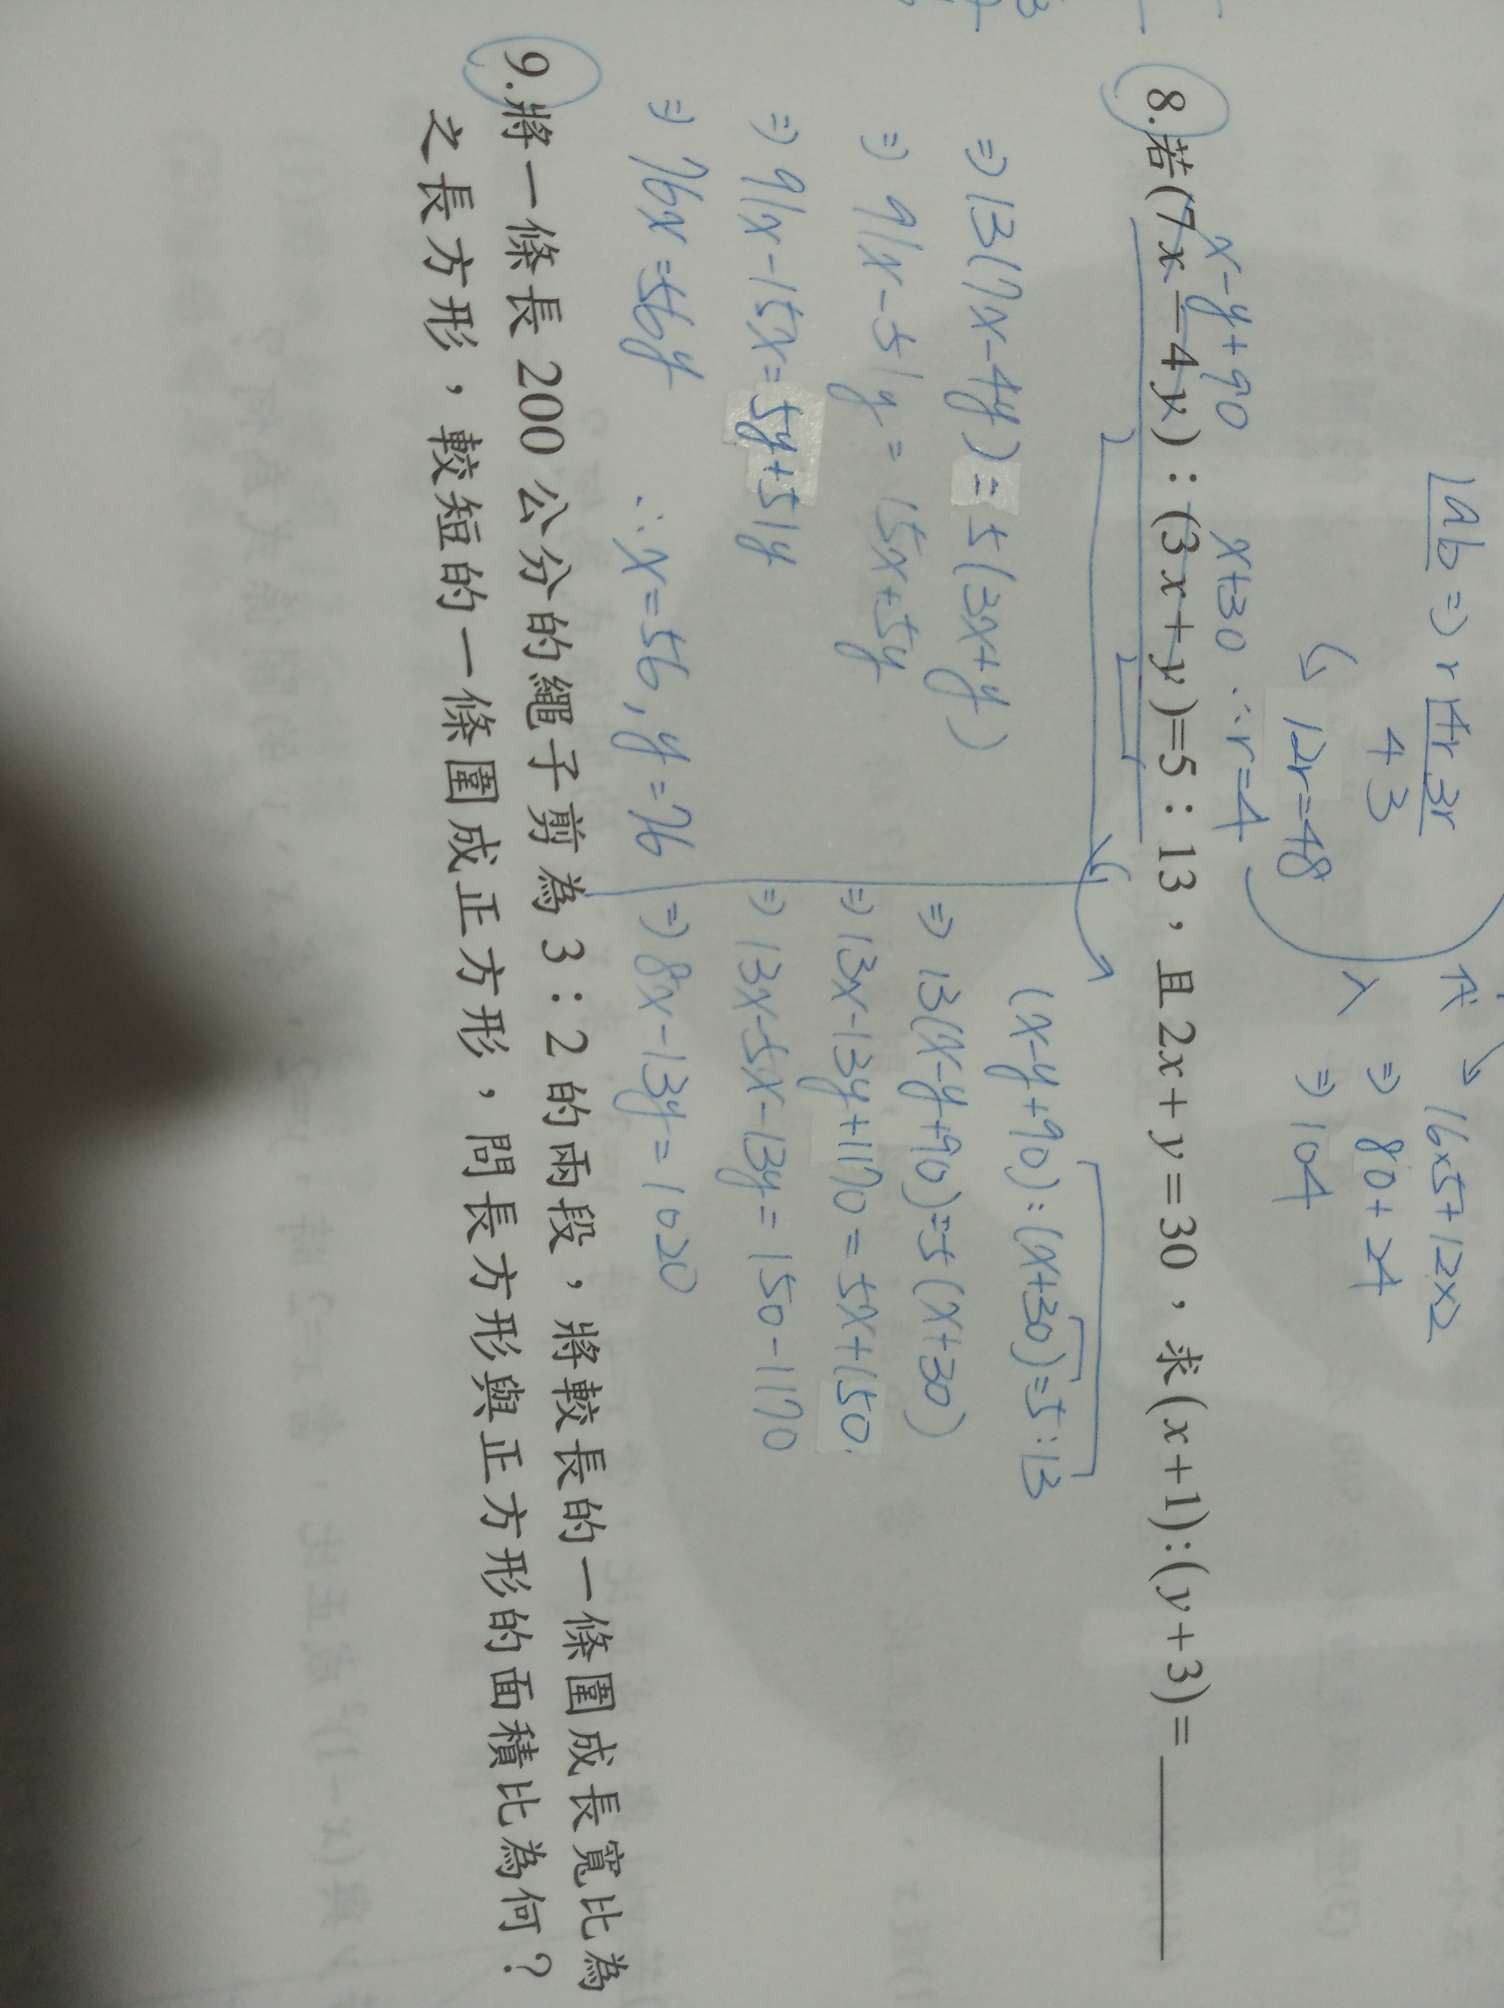 ab ⇒ r 4r 3r
4 3
↳ 12r=48
∴r=4
代 → 16×5+12×2
入 ⇒ 80+24
⇒ 104
x-y+90 x+30
8.若(7x-4y):(3x+y)=5:13，且2x+y=30，求(x+1):(y+3)=
⇒13(7x-4y)=5(3x+y)
⇒ 91x-51y=15x+5y
⇒ 91x-15x=5y+51y
⇒ 76x=56y ∴x=56,y=76
(x-y+90):(x+30)=5:13
⇒ 13(x-y+90)=5(x+30)
⇒13x-13y+1170=5x+150
⇒ 13x-5x-13y=150-1170
⇒ 8x-13y=1020
9.將一條長200公分的繩子剪為3:2的兩段，將較長的一條圍成長寬比為
之長方形，較短的一條圍成正方形，問長方形與正方形的面積比為何？